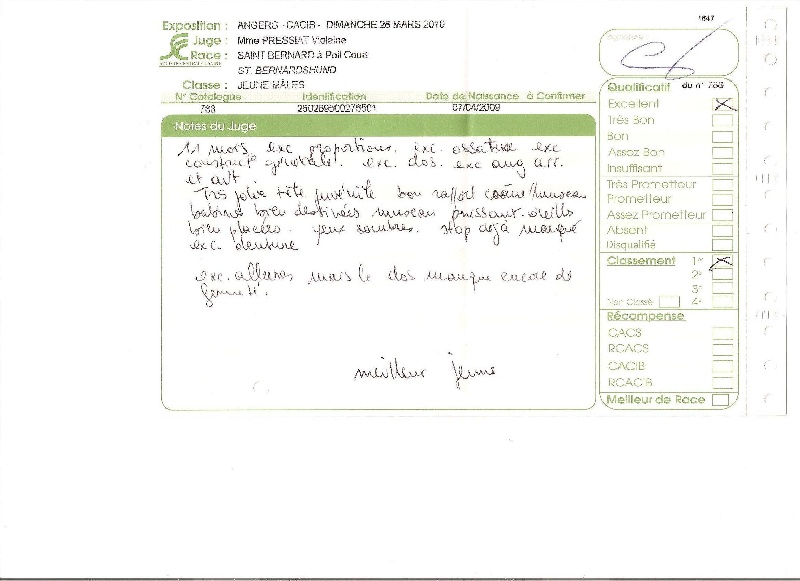 1647
Exposition : ANGERS - CACIB - DIMANCHE 28 MARS 2010
Juge : Mme PRESSIAT Violaine
Race : SAINT BERNARD à Poil Court
ST. BERNARDSHUND
Classe : JEUNE MÂLES
N° Catalogue Identification Date de Naissance à Confirmer
788 07/04/2009
Notes du Juge
11 mois, exc proportions. exc. ossature exc
construct° générale. exc. dos. exc ang arr.
et avt.
Très jolie tête juvénile bon rapport crâne/museau
babines bien dessinées museau puissant oreilles
bien placées. yeux sombres. stop déjà marqué
exc. denture
exc. allures mais le dos manque encore de
fermeté.
meilleur jeune
Signature :
Qualificatif du n° 788
Excellent
Très Bon
Bon
Assez Bon
Insuffisant
Très Prometteur
Prometteur
Assez Prometteur
Absent
Disqualifié
Classement 1er
2e
3e
Non Classé 4e
Récompense
CACS
RCACS
CACIB
RCACIB
Meilleur de Race